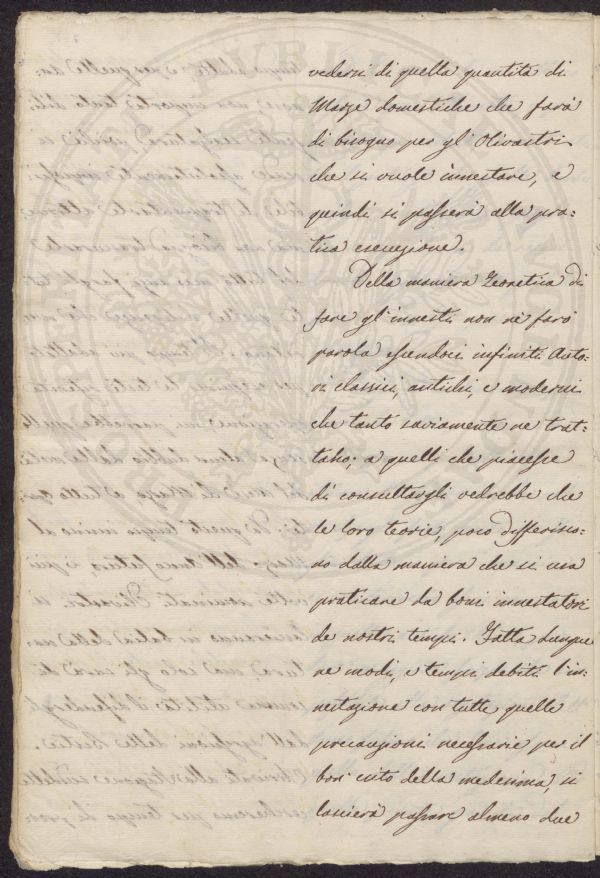 vedersi di quella quantità di
Marze domestiche che farà
di bisogno per gl' Olivastri
che si vuole innestare, e
quindi si passerà alla pra=
tica esecuzione.
Della maniera Teoretica di
fare gl' innesti non ne farò
parola essendoci infiniti Auto=
ri classici, antichi, e moderni
che tanto saviamente ne trat=
tano; a quelli che piacesse
di consultargli vedrebbe che
le loro teorie, poco differisco=
no dalla maniera che si usa
praticare da boni innestatori
de nostri tempi. Fatta dunque
ne modi, e tempi debiti l'in=
nestazione con tutte quelle
precauzioni necessarie per il
bon' esito della medesima, si
lascierà passare almeno due